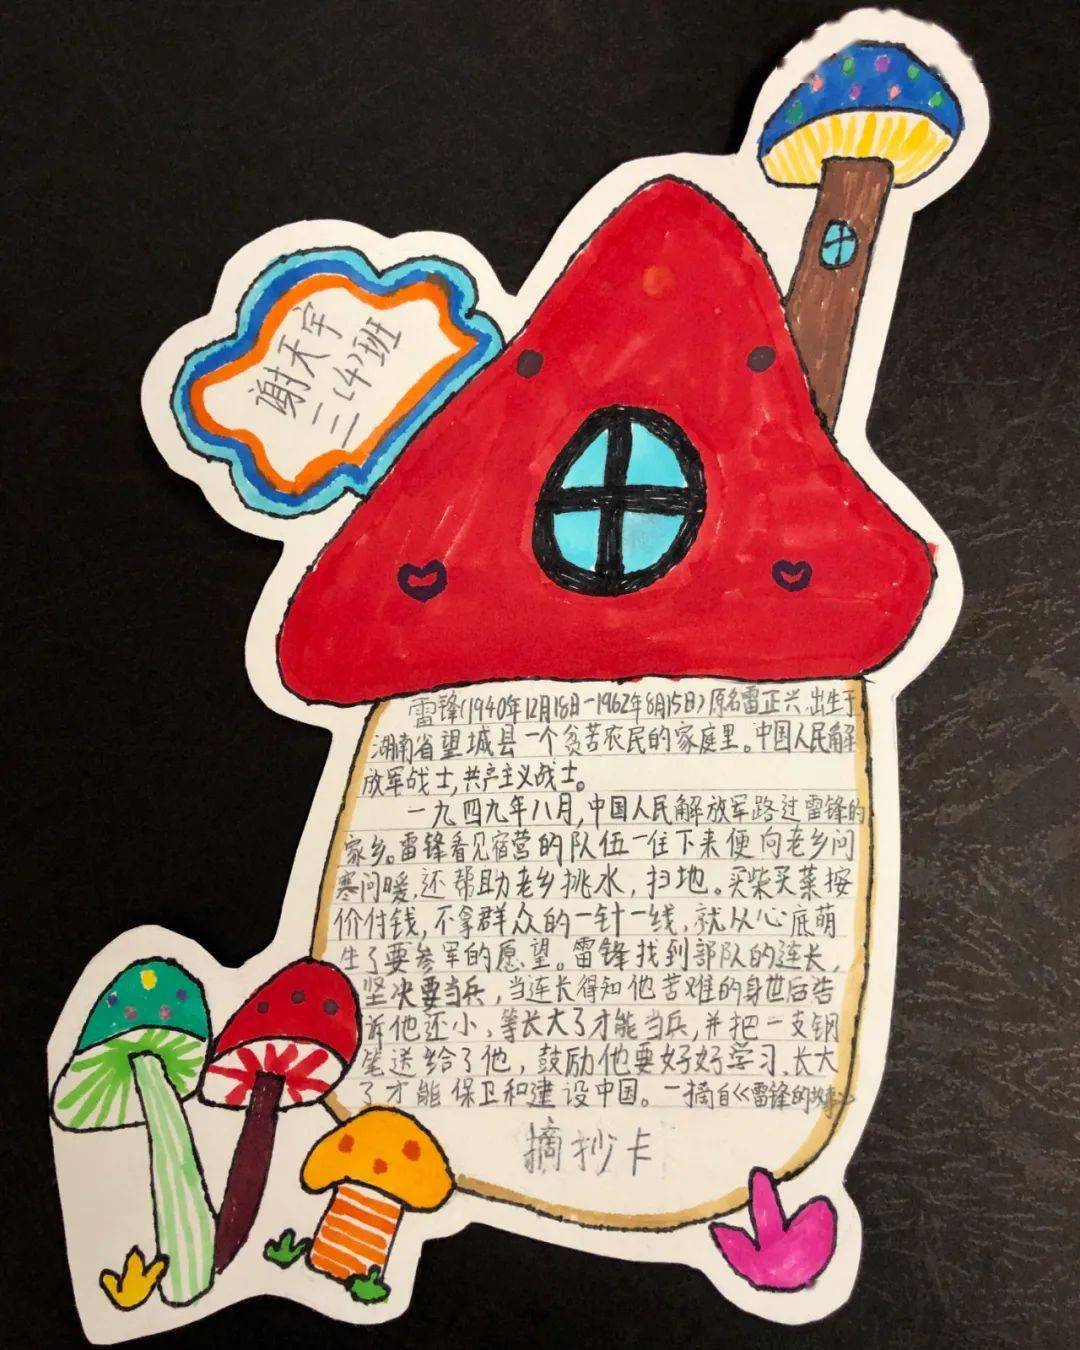 谢天宇
三(4)班
雷锋(1940年12月18日-1962年8月15日)原名雷正兴,出生于
湖南省望城县一个贫苦农民的家庭里。中国人民解
放军战士,共产主义战士。
一九四九年八月,中国人民解放军路过雷锋的
家乡。雷锋看见宿营的队伍一住下来便向老乡问
寒问暖,还帮助老乡挑水,扫地。买柴买菜按
价付钱,不拿群众的一针一线,就从心底萌
生了要参军的愿望。雷锋找到部队的连长,
坚决要当兵,当连长得知他苦难的身世后告
诉他还小,等长大了才能当兵,并把一支钢
笔送给了他,鼓励他要好好学习,长大
了才能保卫和建设中国。—摘自《雷锋的故事》
摘抄卡